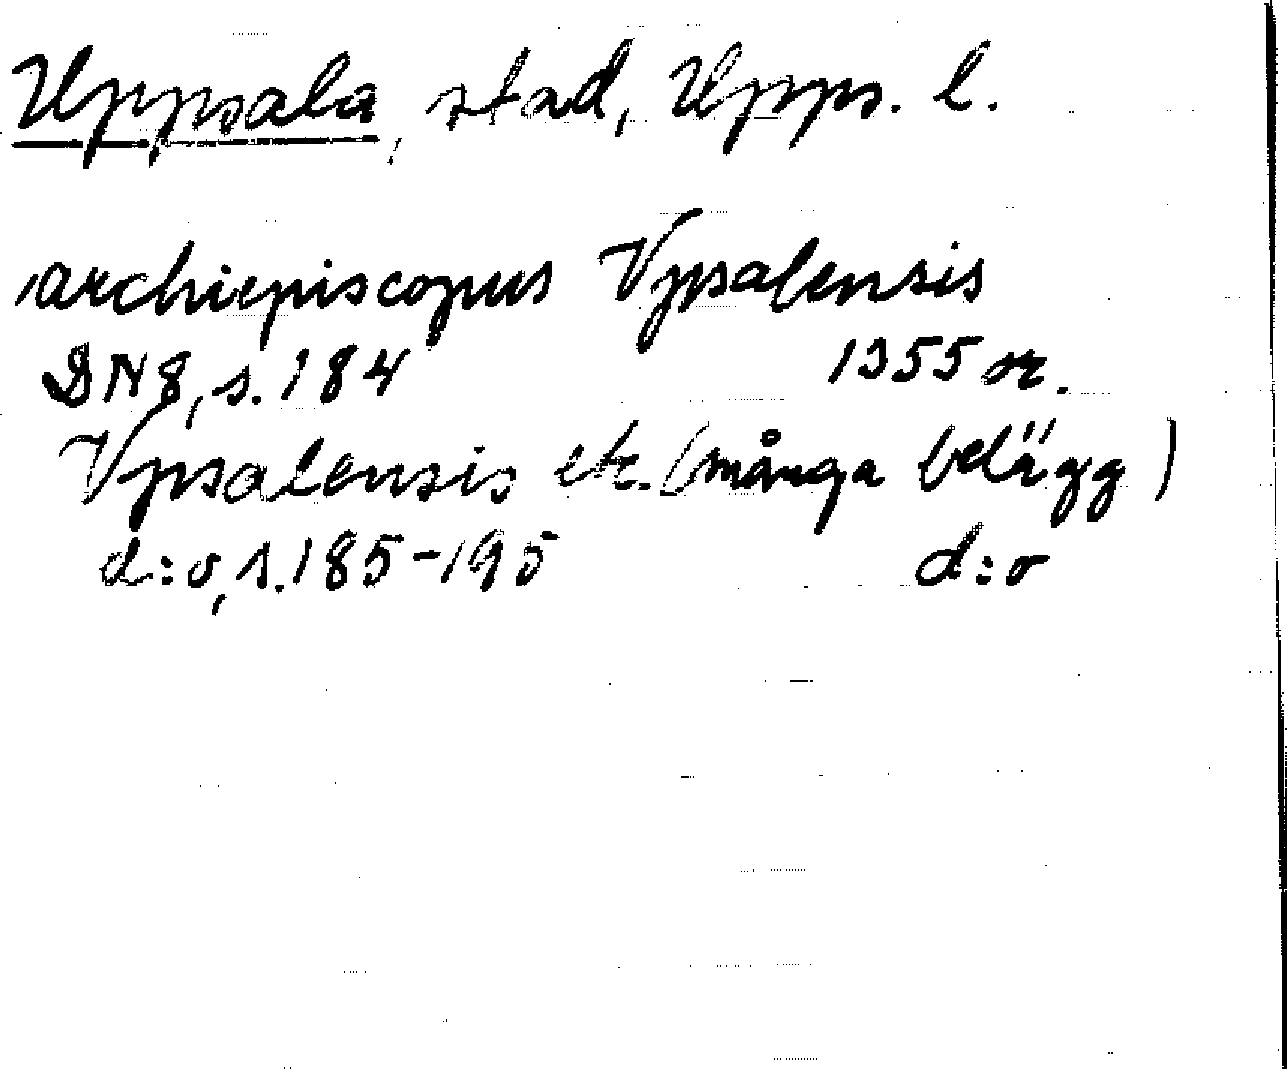 Uppsala, stad, Upps. l.
archiepiscopus Vpsalensis
DN 8, s. 184 1355 or.
Vpsalensis etc. (många belägg)
d:o, s. 185-195 d:o